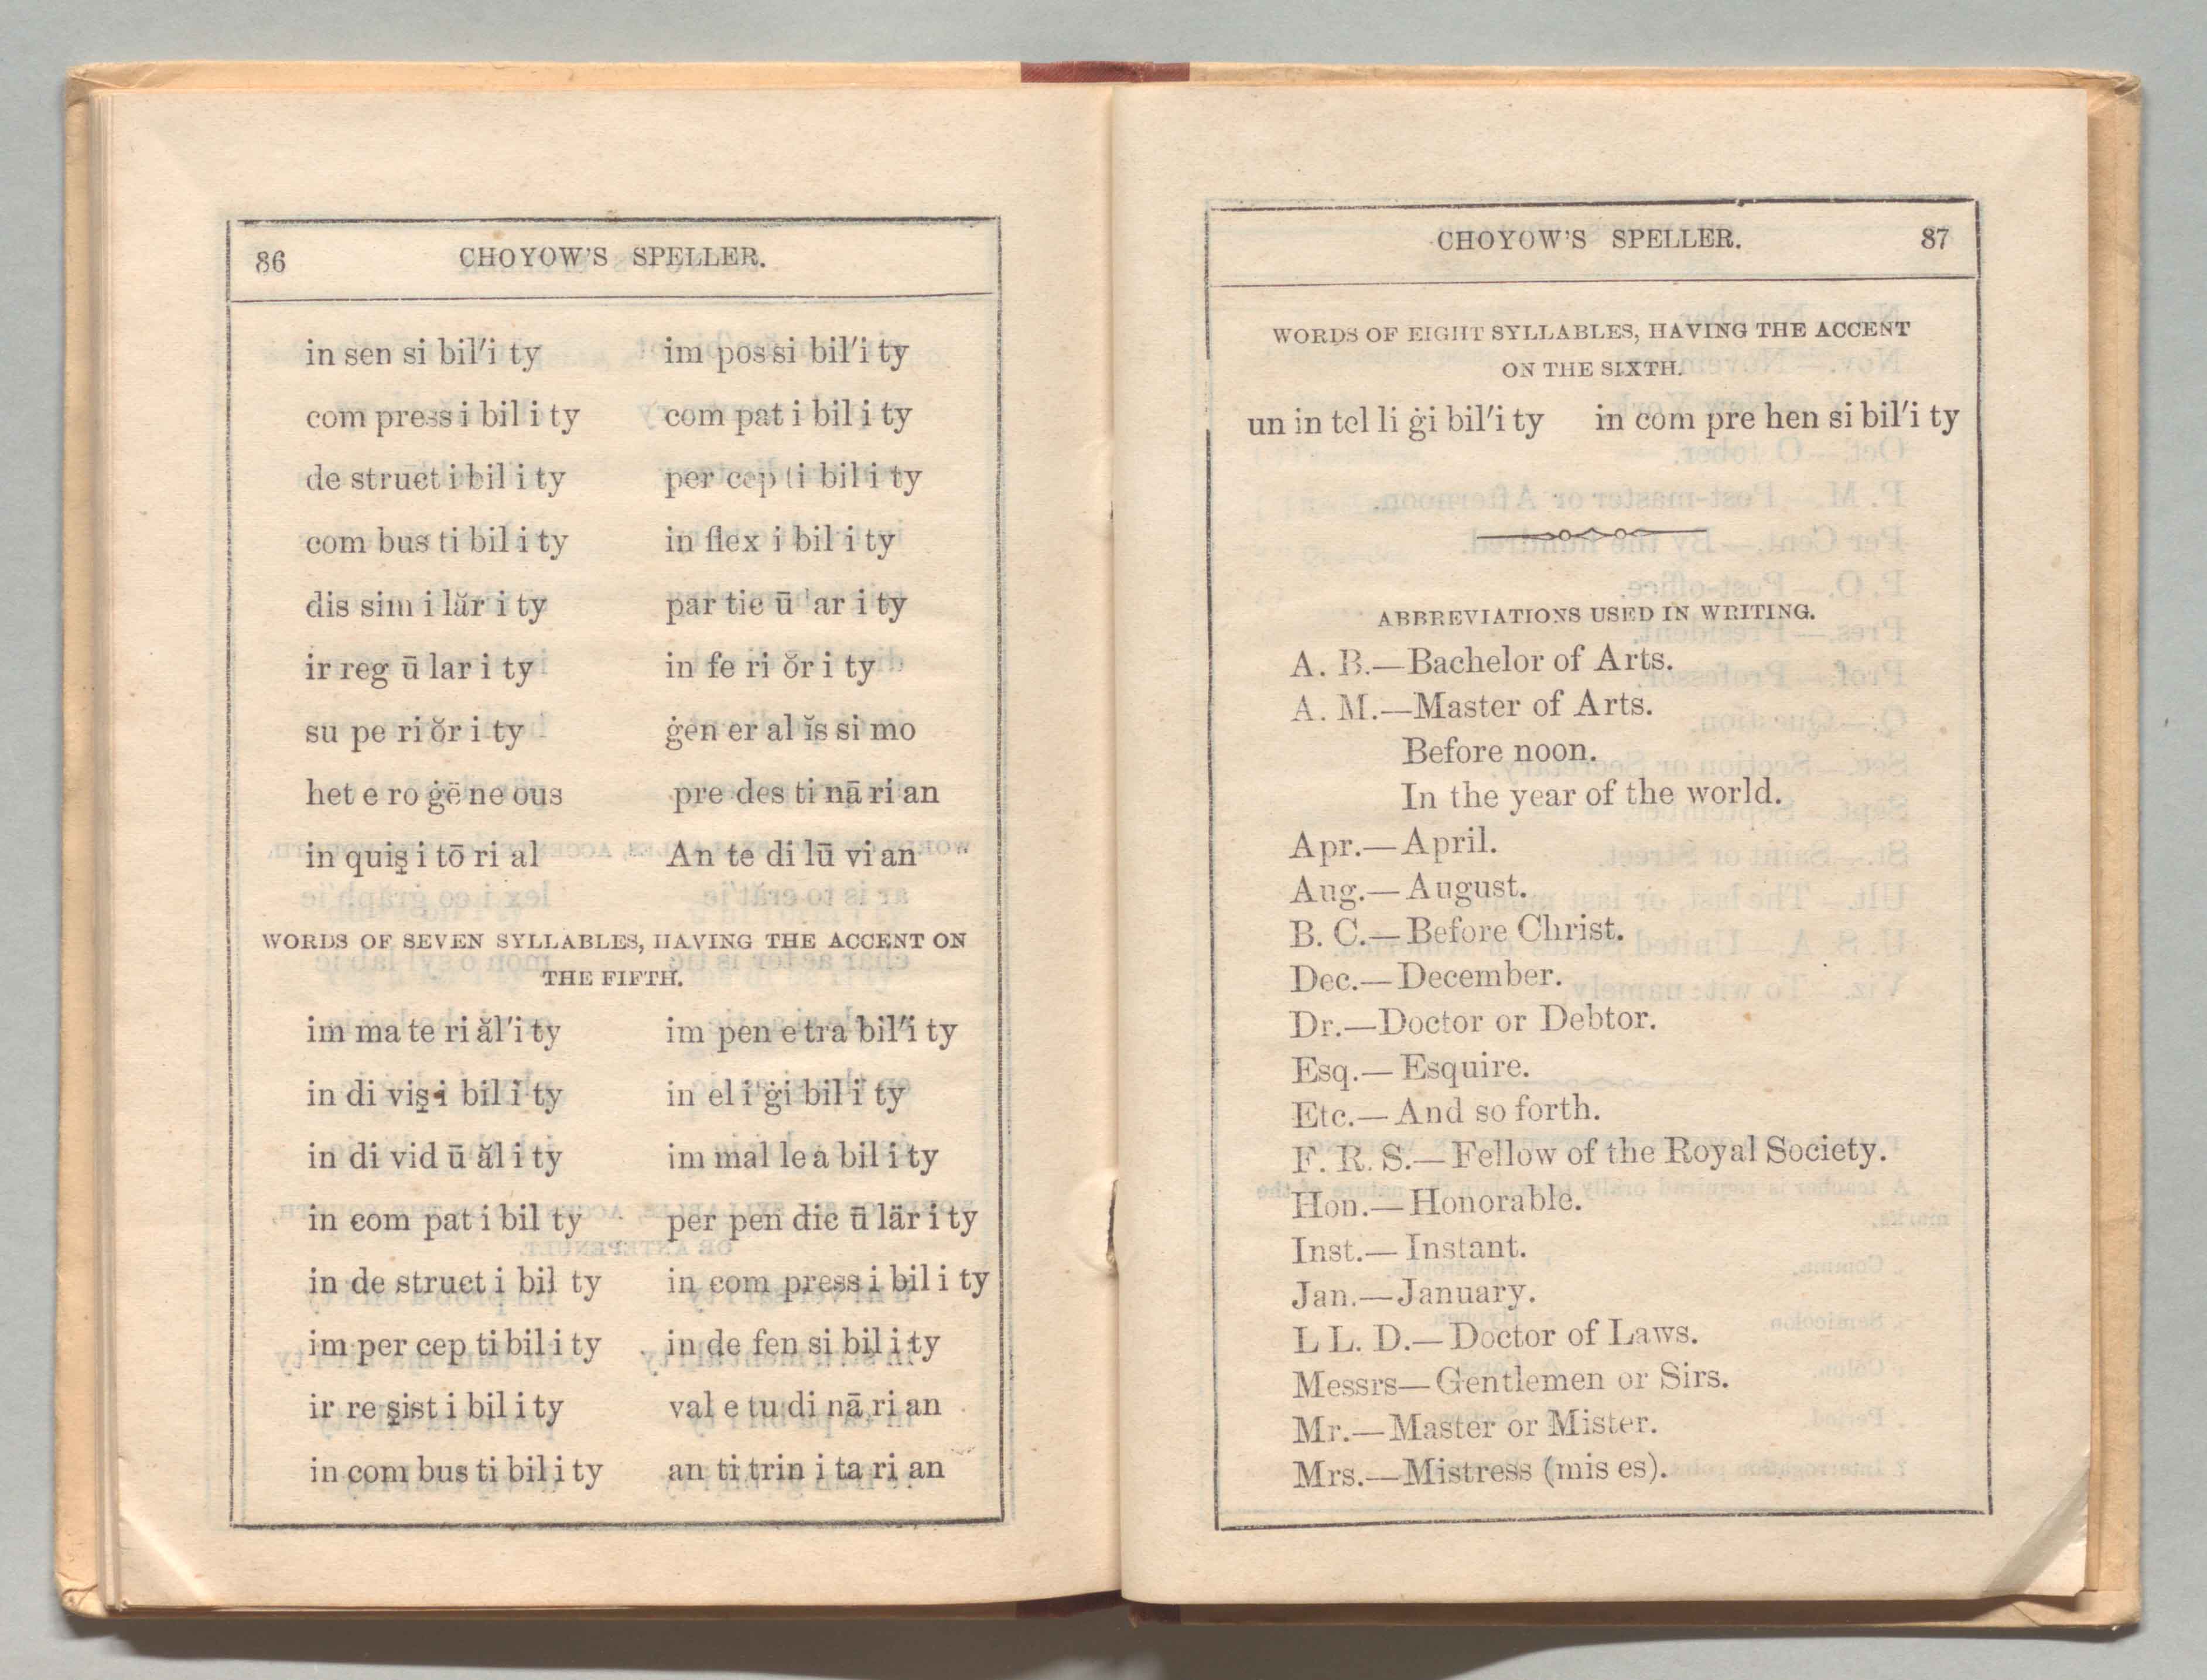 86 CHOYOW'S SPELLER.
in sen si bil'i ty im pos si bil'i ty
com press i bil i ty com pat i bil i ty
de struct i bil i ty per cep ti bil i ty
com bus ti bil i ty in flex i bil i ty
dis sim i lăr i ty par tic ū lar i ty
ir reg ū lar i ty in fe ri ŏr i ty
su pe ri ŏr i ty ġen er al ĭs si mo
het e ro ġē ne ous pre des ti nā ri an
in quiş i tō ri al An te di lū vi an
WORDS OF SEVEN SYLLABLES, HAVING THE ACCENT ON
THE FIFTH.
im ma te ri ăl'i ty im pen e tra bil'i ty
in di viş i bil i ty in el i ġi bil i ty
in di vid ū ăl i ty im mal le a bil i ty
in com pat i bil ty per pen dic ū lăr i ty
in de struct i bil ty in com press i bil i ty
im per cep ti bil i ty in de fen si bil i ty
ir re şist i bil i ty val e tu di nā ri an
in com bus ti bil i ty an ti trin i ta ri an
CHOYOW'S SPELLER. 87
WORDS OF EIGHT SYLLABLES, HAVING THE ACCENT
ON THE SIXTH.
un in tel li ġi bil'i ty in com pre hen si bil'i ty
ABBREVIATIONS USED IN WRITING.
A. B.—Bachelor of Arts.
A. M.—Master of Arts.
Before noon.
In the year of the world.
Apr.—April.
Aug.—August.
B. C.—Before Christ.
Dec.—December.
Dr.—Doctor or Debtor.
Esq.—Esquire.
Etc.—And so forth.
F. R. S.—Fellow of the Royal Society.
Hon.—Honorable.
Inst.—Instant.
Jan.—January.
L L. D.—Doctor of Laws.
Messrs—Gentlemen or Sirs.
Mr.—Master or Mister.
Mrs.—Mistress (mis es).